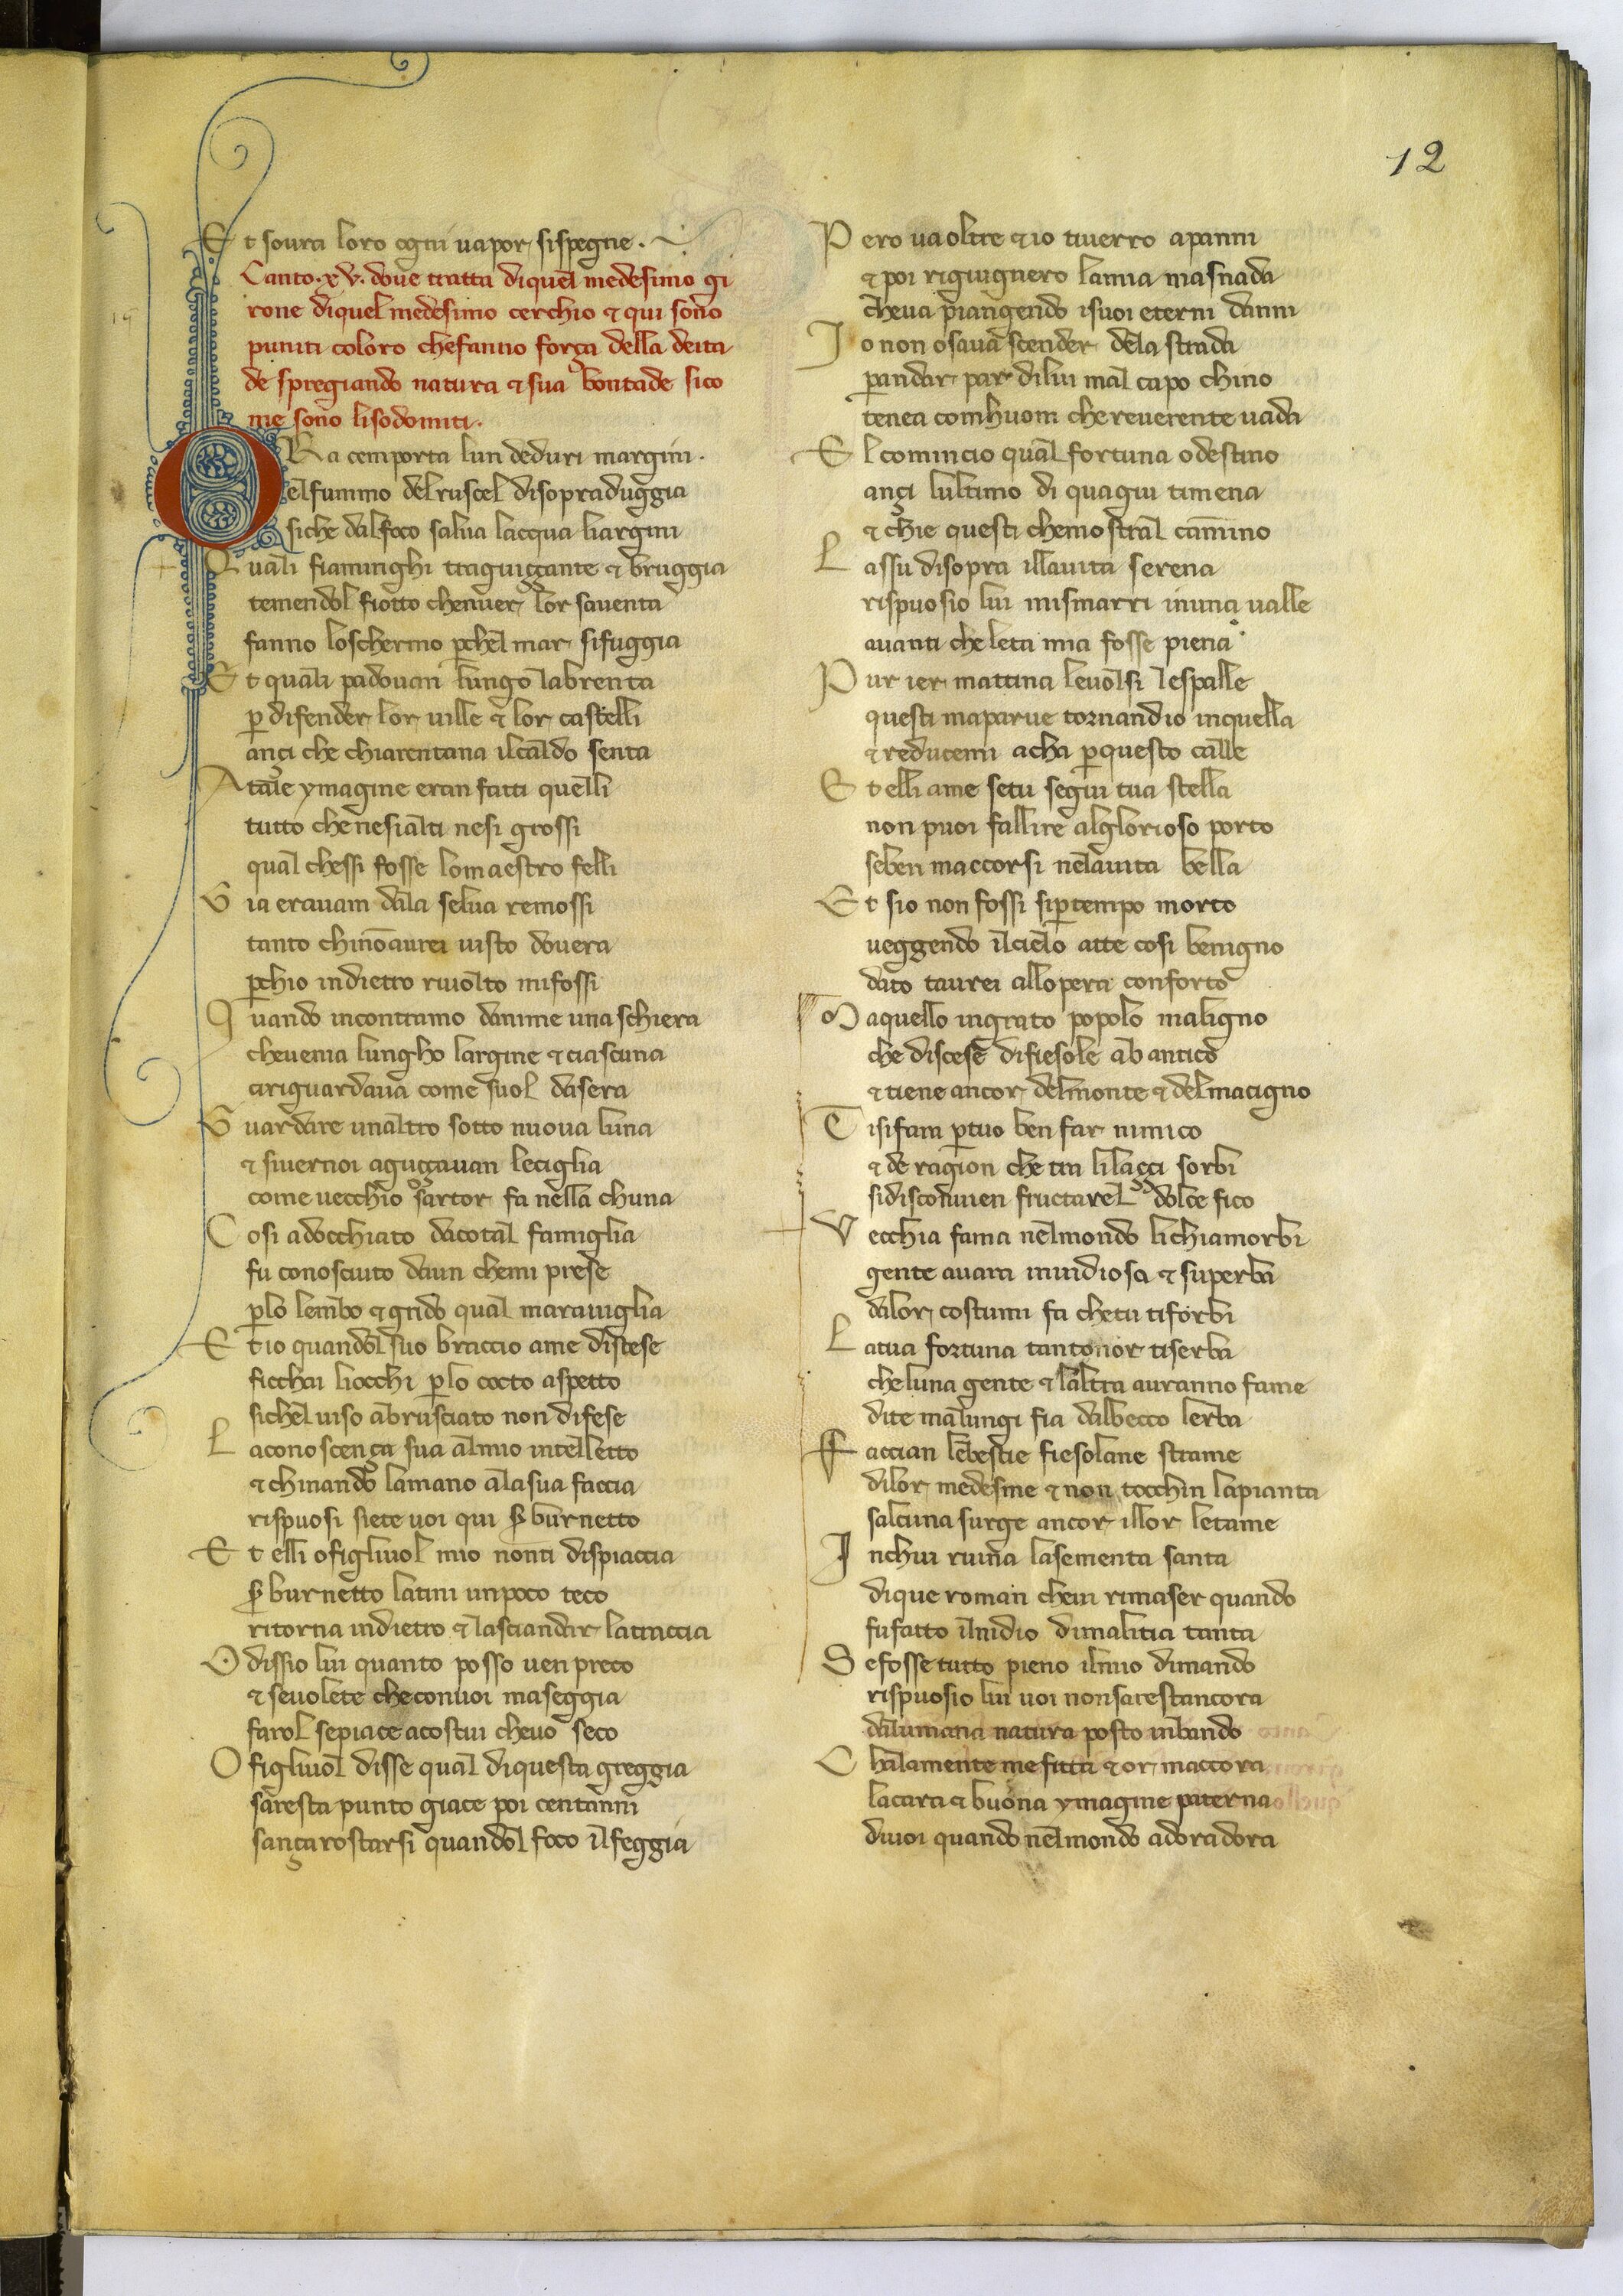 12
Et soura loro ogni uapor sispegne.
Canto .xv. doue tratta diquel medesimo gi
rone diquel medesimo cerchio & qui sono
puniti coloro chefanno força della deita
de spregiando natura & sua bontade sico
me sono lisodomiti.
ORa cemporta lun deduri margini.
elfummo delruscel disopraduggia
siche dalfoco salua lacqua liargini
Quali fiaminghi traguiççante & bruggia
temendol fiotto chenuer lor sauenta
fanno loschermo perchel mar sifuggia
Et quali padouan lungo labrenta
per difender lor uille & lor castelli
ançi che chiarentana ilcaldo senta
Atale ymagine eran fatti quelli
tutto chenesialti nesi grossi
qual chessi fosse lomaestro felli
Gia erauam dala selua remossi
tanto chinonaurei uisto douera
perchio indietro riuolto mifossi
Quando incontramo danime una schiera
cheuenia lungho largine & ciascuna
ciriguardaua come suol dasera
Guardare unaltro sotto nuoua luna
& siuernoi aguççauan leciglia
come uecchio sartor fa nella chuna
Cosi adocchiato dacotal famiglia
fu conosciuto daun chemi prese
perlo lembo & grido qual marauiglia
Et io quandol suo braccio ame distese
ficchai liocchi perlo cocto aspetto
sichel uiso abrusciato non difese
Laconoscença sua almio intelletto
& chinando lamano alasua faccia
rispuosi siete uoi qui ser burnetto
Et elli ofigliuol mio nonti dispiaccia
ser burnetto latini unpoco teco
ritorna indietro & lasciandar latraccia
O dissio lui quanto posso uen preco
& seuolete checonuoi maseggia
farol sepiace acostui cheuo seco
O figliuol disse qual diquesta greggia
saresta punto giace poi centanni
sançarostarsi quandol foco ilfeggia
Pero ua oltre & io tiuerro apanni
& poi rigiugnero lamia masnada
cheua piangendo isuoi eterni danni
Io non osaua scender dela strada
perandar par dilui mal capo chino
tenea comhuom chereuerente uada
El comincio qual fortuna odestino
ançi lultimo di quagiu timena
& chie questi chemostral camino
Lassu disopra illauita serena
rispuosio lui mismarri inuna ualle
auanti che leta mia fosse piena
Pur ier mattina leuolsi lespalle
questi maparue tornandio inquella
& reducemi acha perquesto calle
Et elli ame setu segui tua stella
non puoi fallire alglorioso porto
seben maccorsi nelauita bella
Et sio non fossi sipertempo morto
ueggendo ilcielo atte cosi benigno
dato taurei allopera conforto
Maquello ingrato popolo maligno
che discese difiesole abantico
& tiene ancor delmonte & delmacigno
Tisifara pertuo ben far nimico
& de ragion che tra lilaççi sorbi
sidisconuien fructarel dolce fico
Vecchia fama nelmondo lichiamorbi
gente auara inuidiosa & superba
dalor costumi fa chetu tiforbi
Latua fortuna tantonor tiserba
cheluna gente & laltra auranno fame
dite malungi fia dalbecco lerba
Faccian lebestie fiesolane strame
dilor medesme & non tocchin lapianta
salcuna surge ancor illor letame
Inchui riuina lasementa santa
dique roman cheui rimaser quando
fufatto ilnidio dimalitia tanta
Sefosse tutto pieno ilmio dimando
rispuosio lui uoi nonsarestancora
dalumana natura posto inbando
Chalamente mefitta & or maccora
lacara & buona ymagine paterna
diuoi quando nelmondo adoradora